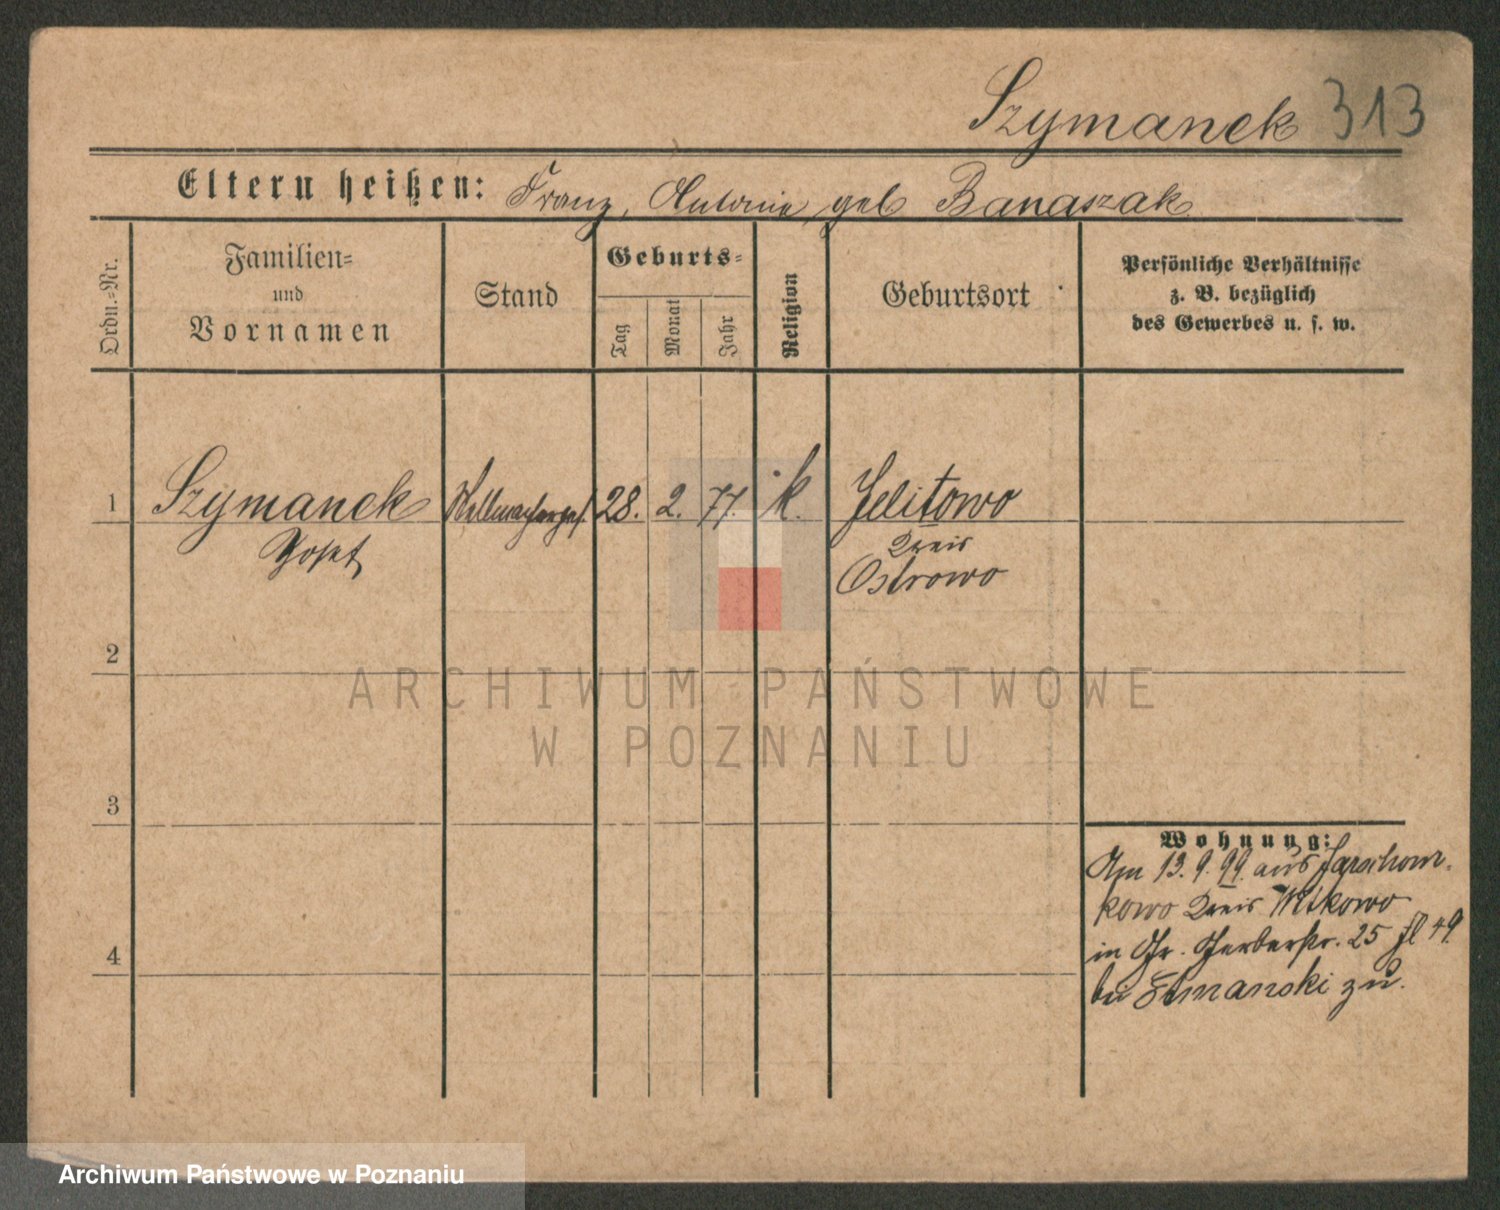 Szymanek 313
Eltern heißen: Franz, Antonie geb Banaszak
Ordn.-Nr.
Familien-
und
Vornamen
Stand
Geburts-
Tag
Monat
Jahr
Religion
Geburtsort
Persönliche Verhältnisse
z. B. bezüglich
des Gewerbes u. s. w.
1 Szymanek 28. 2. 77. k. Jelitowo
Josef
Kreis
Ostrowo
2
3
4
Wohnung:
Am 13. 9. 99. aus
kowo Kreis Witkowo
in Gr. Gerberstr. 25
bei zu.
ARCHIWUM PAŃSTWOWE
W POZNANIU
Archiwum Państwowe w Poznaniu